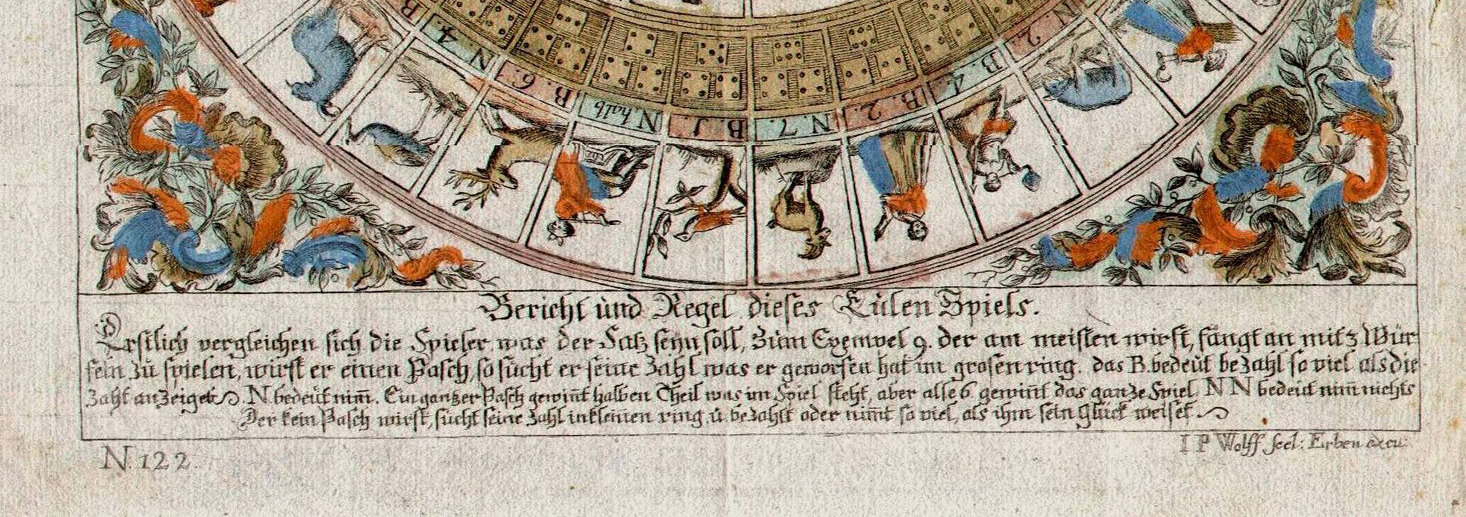 B.
N 4.
B 6.
N halb
B 1
N 7.
B. 2.
B. 4.
2
Bericht und Regel dieses Eülen Spiels.
Erstlich vergleichen sich die Spieler was der Satz seyn soll, Zum Exempel 9. der am meisten wirft, fängt an mit 3 Wür-
feln zu spielen, würft er einen Pasch, so sücht er seine Zahl was er geworfen hat im grosen ring. das B. bedeüt bezahl so viel als die
Zahl anzeiget. N. bedeüt nim̄. Ein gantzer Pasch gewint halben Theil was im Spiel steht, aber alle 6 gewint das ganze Spiel. N N bedeüt nim̄ nichts
Der kein Pasch wirft, sücht seine Zahl in kleinen ring ü. bezahlt oder nim̄t so viel, als ihm sein Glück weiset.
N. 122.
I P Wolff seel: Erben excu: